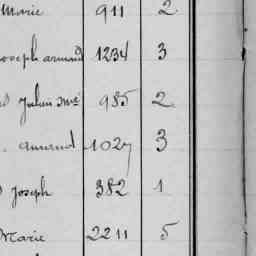 Marie 911 2
Joseph armand 1234 3
Julien 985 2
armand 1027 3
Joseph 382 1
Marie 2211 5